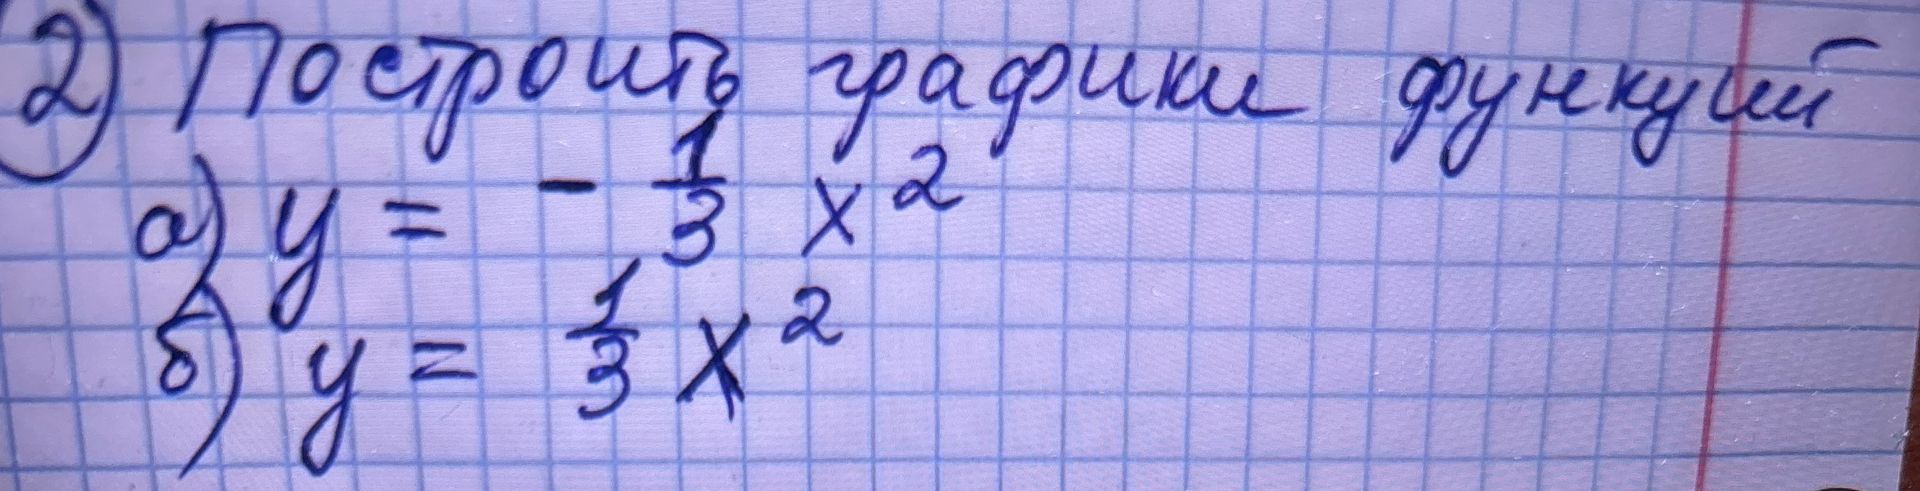 2) Построить графики функций
а) y = - 1/3 x²
б) y = 1/3 x²